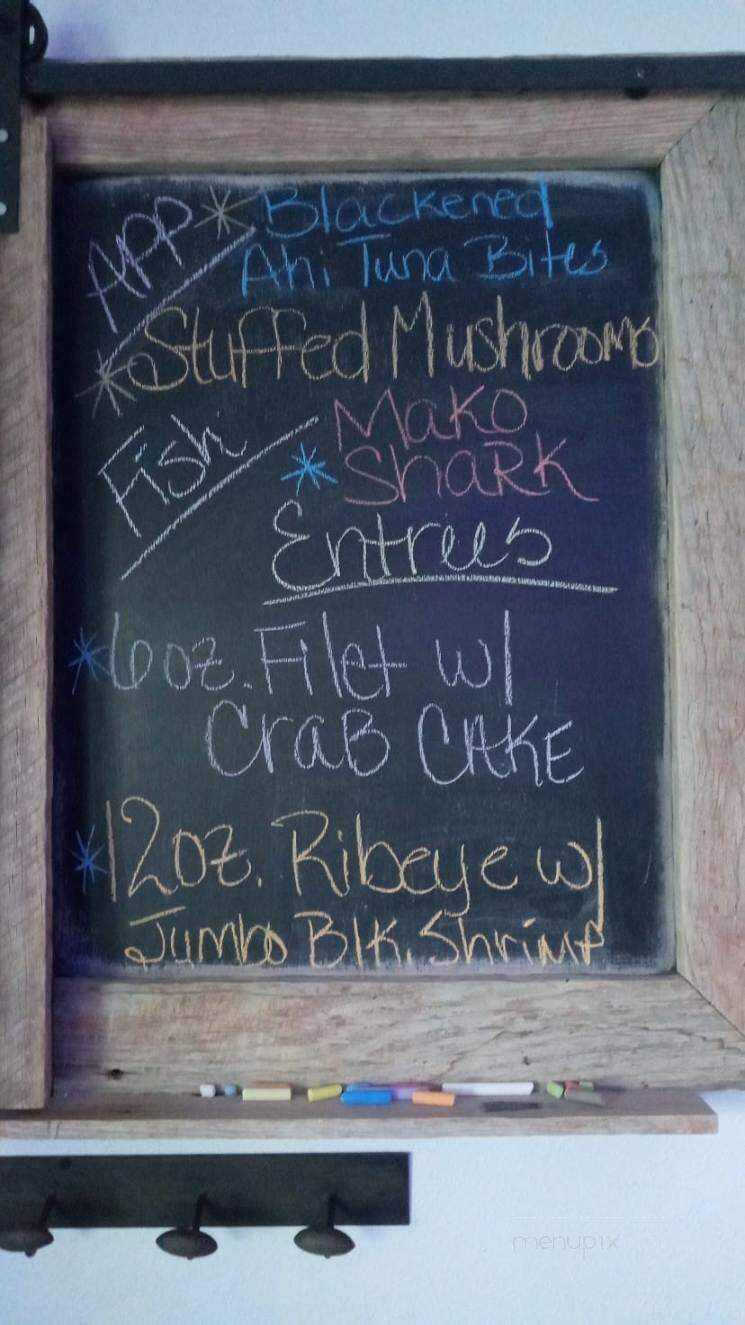 APP * Blackened
Ahi Tuna Bites
* Stuffed Mushrooms
Fish Mako
* Shark
Entrees
* 6oz. Filet w/
Crab CAKE
* 12oz. Ribeye w/
Jumbo Blk. Shrimp
menupix